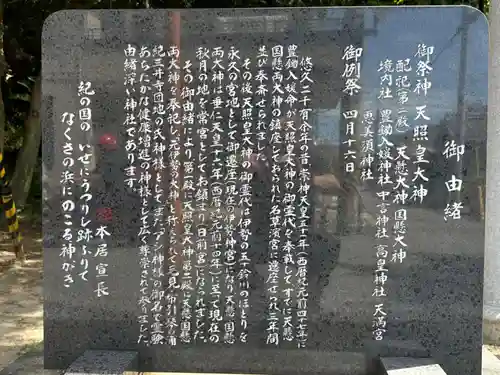 御由緒
御祭神 天照皇大神
配祀(第二殿) 天懸大神 国懸大神
境内社 豊鋤入姫神社 中言神社 高皇神社 天満宮
恵美須神社
御例祭 四月十六日
悠久二千有余年の昔崇神天皇五十一年(西暦紀元前四十七年)に
豊鋤入姫命が天照皇大神の御霊代を奉戴して すでに天懸
国懸両大神の鎮座しておられた名草濱宮に遷座せられ三年間
並び奉斎せられました。
その後天照皇大神の御霊代は伊勢の五十鈴川のほとりを
永久の宮地として御遷座(現在の伊勢神宮)になり 天懸 国懸
両大神は垂仁天皇十六年(西暦紀元前十四年)に至って現在の
秋月の地を常宮としてお鎮まり(日前宮)になられました。
その御由緒により第一殿に天照皇大神第二殿に天懸国懸
両大神を奉祀し 元伊勢の大神と称えられて三見 布引 琴の浦
紀三井寺団地の氏神様として
あらたかな健康増進の神様として広く尊崇されて参りました
由緒深い神社であります。
紀の国の いせにうつりし跡ふりて
なくさの浜に のこる神がき
本居宣長